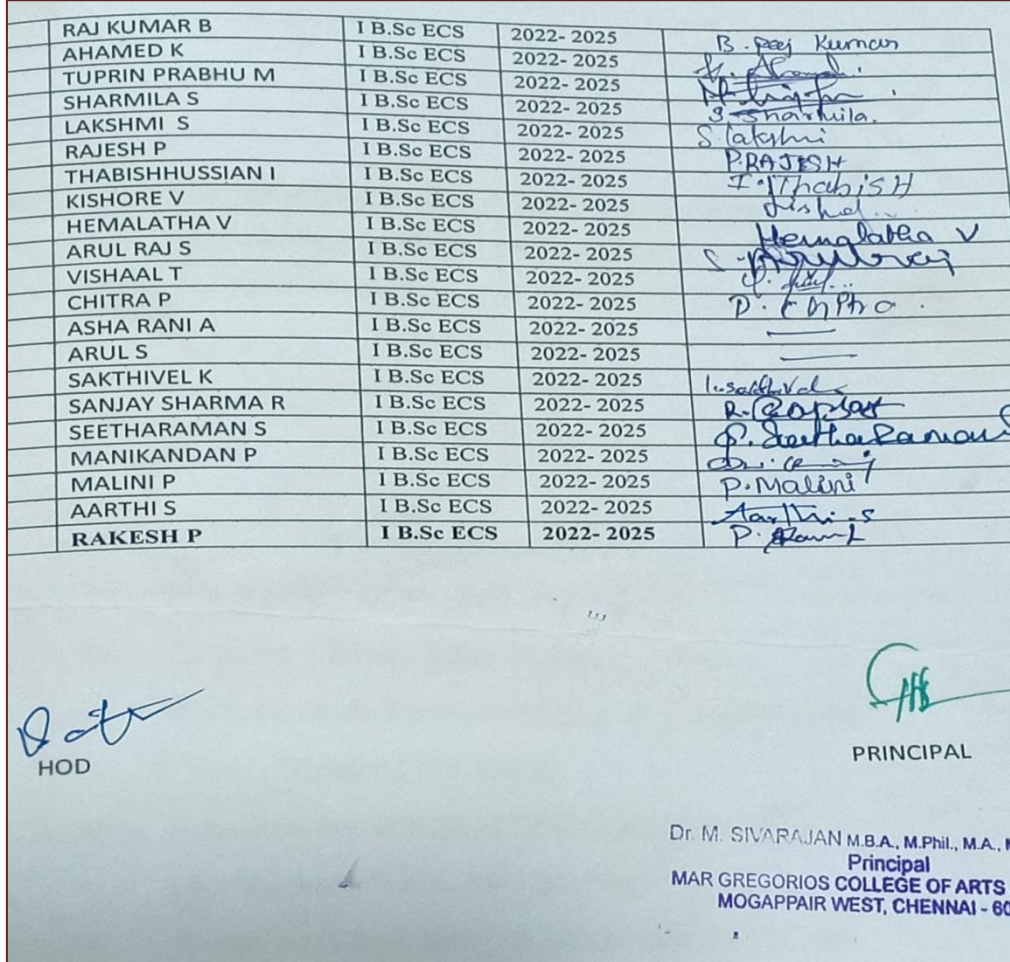 RAJ KUMAR B I B.Sc ECS 2022- 2025 B. Raj Kumar
AHAMED K I B.Sc ECS 2022- 2025
TUPRIN PRABHU M I B.Sc ECS 2022- 2025
SHARMILA S I B.Sc ECS 2022- 2025 S. Sharmila.
LAKSHMI S I B.Sc ECS 2022- 2025 S Lakshmi
RAJESH P I B.Sc ECS 2022- 2025 P.RAJESH
THABISHHUSSIAN I I B.Sc ECS 2022- 2025 I. Thabish
KISHORE V I B.Sc ECS 2022- 2025
HEMALATHA V I B.Sc ECS 2022- 2025 Hemalatha V
ARUL RAJ S I B.Sc ECS 2022- 2025
VISHAAL T I B.Sc ECS 2022- 2025
CHITRA P I B.Sc ECS 2022- 2025
ASHA RANI A I B.Sc ECS 2022- 2025
ARUL S I B.Sc ECS 2022- 2025
SAKTHIVEL K I B.Sc ECS 2022- 2025
SANJAY SHARMA R I B.Sc ECS 2022- 2025
SEETHARAMAN S I B.Sc ECS 2022- 2025
MANIKANDAN P I B.Sc ECS 2022- 2025
MALINI P I B.Sc ECS 2022- 2025 P. Malini
AARTHI S I B.Sc ECS 2022- 2025 Aarthi.S
RAKESH P I B.Sc ECS 2022- 2025
HOD
PRINCIPAL
Dr. M. SIVARAJAN M.B.A., M.Phil., M.A.,
Principal
MAR GREGORIOS COLLEGE OF ARTS
MOGAPPAIR WEST, CHENNAI - 60